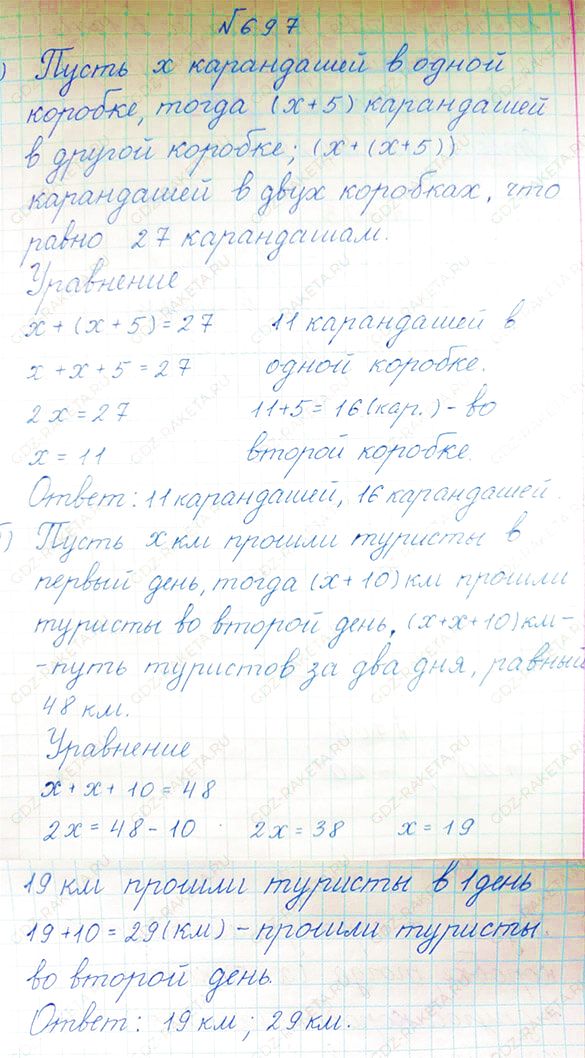 №697
) Пусть x карандашей в одной
коробке, тогда (x+5) карандашей
в другой коробке; (x+(x+5))
карандашей в двух коробках, что
равно 27 карандашам.
Уравнение
x+(x+5)=27 11 карандашей в
x+x+5=27 одной коробке.
2x=27 11+5=16(кар.)-во
x=11 второй коробке.
Ответ: 11 карандашей, 16 карандашей.
б) Пусть x км прошли туристы в
первый день, тогда (x+10) км прошли
туристы во второй день. (x+x+10) км-
-путь туристов за два дня, равный
48 км.
Уравнение
x+x+10=48
2x=48-10 2x=38 x=19
19 км прошли туристы в 1 день
19+10=29(км)-прошли туристы
во второй день.
Ответ: 19 км; 29 км.
GDZ-RAKETA.RU